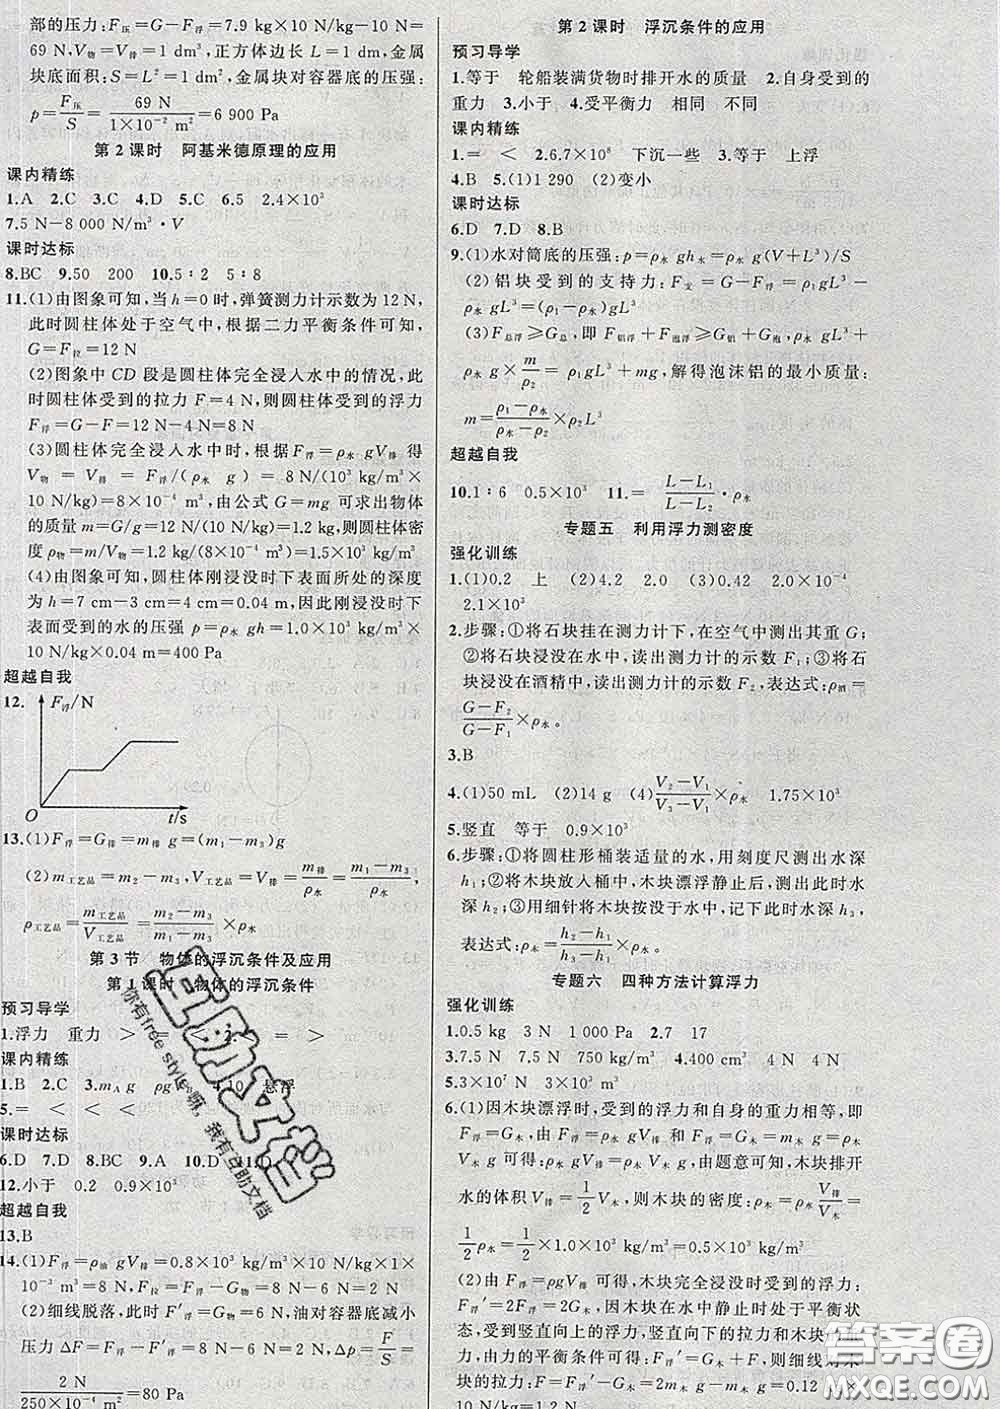 部的压力:F压=G-F浮=7.9 kg×10 N/kg-10 N=
69 N,V物=V=1 dm³,正方体边长 L=1 dm,金属
块底面积:S=L²=1 dm²,金属块对容器底的压强:
p=F压/S=69 N/(1×10⁻² m²)=6 900 Pa
第2课时 阿基米德原理的应用
课内精练
1.A 2.C 3.C 4.D 5.C 6.5 2.4×10³
7.5 N-8 000 N/m³·V
课时达标
8.BC 9.50 200 10.5∶2 5∶8
11.(1)由图象可知,当h=0时,弹簧测力计示数为12 N,
此时圆柱体处于空气中,根据二力平衡条件可知,
G=F拉=12 N
(2)图象中CD段是圆柱体完全浸入水中的情况,此
时圆柱体受到的拉力F=4 N,则圆柱体受到的浮力
F浮=G-F=12 N-4 N=8 N
(3)圆柱体完全浸入水中时,根据F浮=ρ水 gV排 得
V物=V排=F浮/(ρ水 g)=8 N/(1×10³ kg/m³×
10 N/kg)=8×10⁻⁴ m³,由公式G=mg可求出物体
的质量m=G/g=12 N/(10 N/kg)=1.2 kg,则圆柱体密
度ρ物=m/V物=1.2 kg/(8×10⁻⁴ m³)=1.5×10³ kg/m³
(4)由图象可知,圆柱体刚浸没时下表面所处的深度
为h=7 cm-3 cm=4 cm=0.04 m,因此刚浸没时下
表面受到的水的压强 p=ρ水 gh=1.0×10³ kg/m³×
10 N/kg×0.04 m=400 Pa
超越自我
12. F浮/N
O t/s
13.(1)F浮=G排=m排 g=(m₁-m₃)g
(2)m工艺品=m₂-m₃,V工艺品=V排=m排/ρ水=(m₁-m₃)/ρ水,
ρ工艺品=m工艺品/V工艺品=(m₂-m₃)/(m₁-m₃)×ρ水
第3节 物体的浮沉条件及应用
第1课时 物体的浮沉条件
预习导学
1.浮力 重力 > = <
课内精练
1.B 2.C 3.mA g
5.= < < <
课时达标
6.D 7.D 8.BC 9.A 10.D 11.D
12.小于 0.2 0.9×10³
超越自我
13.B
14.(1)F浮=ρ油 gV排=0.8×10³ kg/m³×10 N/kg×1×
10⁻³ m³=8 N,F拉=F浮-G物=8 N-6 N=2 N
(2)细线脱落,此时F′浮=G物=6 N,油对容器底减小
压力ΔF=F浮-F′浮=8 N-6 N=2 N,Δp=F/S=
2 N/(250×10⁻⁴ m²)=80 Pa
第2课时 浮沉条件的应用
预习导学
1.等于 轮船装满货物时排开水的质量 2.自身受到的
重力 3.小于 4.受平衡力 相同 不同
课内精练
1.= < 2.6.7×10⁸ 下沉一些 3.等于 上浮
4.B 5.(1)1 290 (2)变小
课时达标
6.D 7.D 8.B
9.(1)水对筒底的压强:p=ρ水 gh水=ρ水 g(V+L³)/S
(2)铝块受到的支持力:F支=G-F浮=ρ₁ gL³-
ρ水 gL³=(ρ₁-ρ水)gL³
(3)F总浮⩾G总,即F铝浮+F泡浮⩾G铝+G泡,ρ水 gL³+
ρ水 g×m/ρ₂=ρ₁gL³+mg,解得泡沫铝的最小质量:
m=(ρ₁-ρ水)/(ρ水-ρ₂)×ρ₂L³
超越自我
10.1∶6 0.5×10³ 11.= (L-L₁)/(L-L₂)·ρ水
专题五 利用浮力测密度
强化训练
1.(1)0.2 上 (2)4.2 2.0 (3)0.42 2.0×10⁻⁴
2.1×10³
2.步骤:①将石块挂在测力计下,在空气中测出其重G;
②将石块浸没在水中,读出测力计的示数F₁;③将石
块浸没在酒精中,读出测力计的示数F₂,表达式:ρ酒=
(G-F₂)/(G-F₁)×ρ水。
3.B
4.(1)50 mL (2)14 g (4)(V₂-V₁)/(V₃-V₁) 1.75×10³
5.竖直 等于 0.9×10³
6.步骤:①将圆柱形桶装适量的水,用刻度尺测出水深
h₁;②将木块放入桶中,木块漂浮静止后,测出水深
h₂;③用细针将木块按没于水中,记下此时水深h₃,
表达式:ρ木=(h₂-h₁)/(h₃-h₁)×ρ水。
专题六 四种方法计算浮力
强化训练
1.0.5 kg 3 N 1 000 Pa 2.7 17
3.7.5 N 7.5 N 750 kg/m³ 4.400 cm³ 4 N 4 N
5.3×10⁷ N 3×10³ m³
6.(1)因木块漂浮时,受到的浮力和自身的重力相等,即
F浮=G木,由F浮=ρ水 gV排 和F浮=G木=m木 g=ρ木
V木 g可得:ρ水 gV排=ρ木 V木 g,由题意可知,木块排开
水的体积V排=1/2 V木,则木块的密度:ρ木=V排/V木 ρ水=
1/2 ρ水=1/2×1.0×10³ kg/m³=0.5×10³ kg/m³
(2)由F浮=ρgV排可得,木块完全浸没时受到的浮力:
F浮′=2F浮=2G木,因木块在水中静止时处于平衡状
态,受到竖直向上的浮力、竖直向下的拉力和木块
力,由力的平衡条件可得:F浮′=G木+F,则细线对木
块的拉力:F=F浮′-G木=2G木-G木=G木=m木 g=0.12
10 N/kg=1.2 N
互助文档
你有free style嘛,我有互助文档
答案圈
MXQE.COM